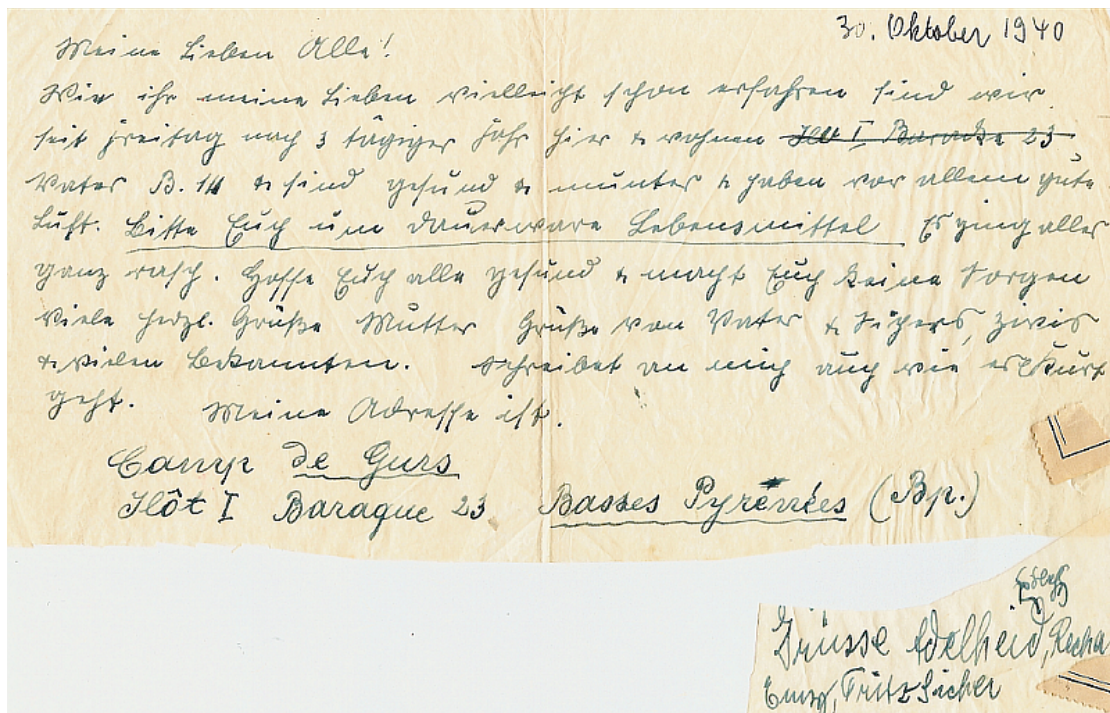 30. Oktober 1940
Meine Lieben Alle!
Wie ihr meine Lieben vielleicht schon erfahren sind wir
seit Freitag nach 3 tägiger Fahr hier & wohnen Ilôt I Baracke 23
Vater B. 11 & sind gesund & munter & haben vor allem gute
Luft. Bitte Euch um dauerware Lebensmittel Es ging alles
ganz rasch. Hoffe Euch alle gesund & macht Euch keine Sorgen
Viele herzl. Grüße Mutter Grüße von Vater &
& vielen Bekannten. Schreibet an mich auch wie es Kurt
geht. Meine Adresse ist.
Camp de Gurs
Ilôt I Baraque 23 Basses Pyrénées (Bp.)
Grüsse Adelheid, Recha
Emmy, Fritz Sicher